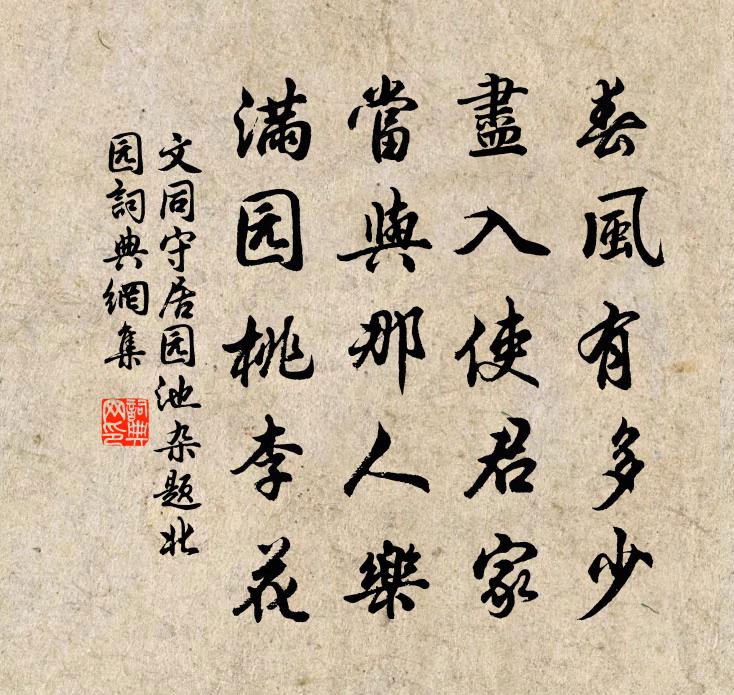 春風有多少
盡入使君家
當與那人樂
满园桃李花
文同守居园池杂题北
园詞典網集
詞典
网印